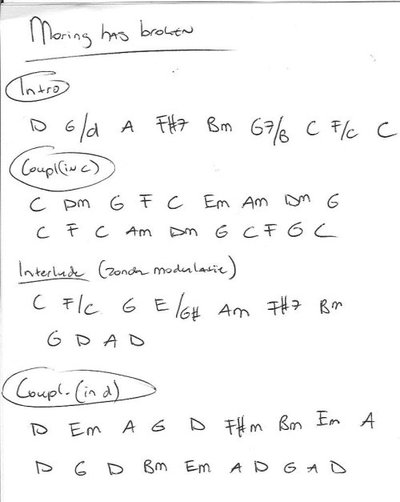 Moring has broken
Intro
D G/d A F#7 Bm G7/B C F/C C
Coupl (in c)
C Dm G F C Em Am Dm G
C F C Am Dm G C F G C
Interlude (zonder modulatie)
C F/C G E/G# Am F#7 Bm
G D A D
Coupl. (in d)
D Em A G D F#m Bm Em A
D G D Bm Em A D G A D